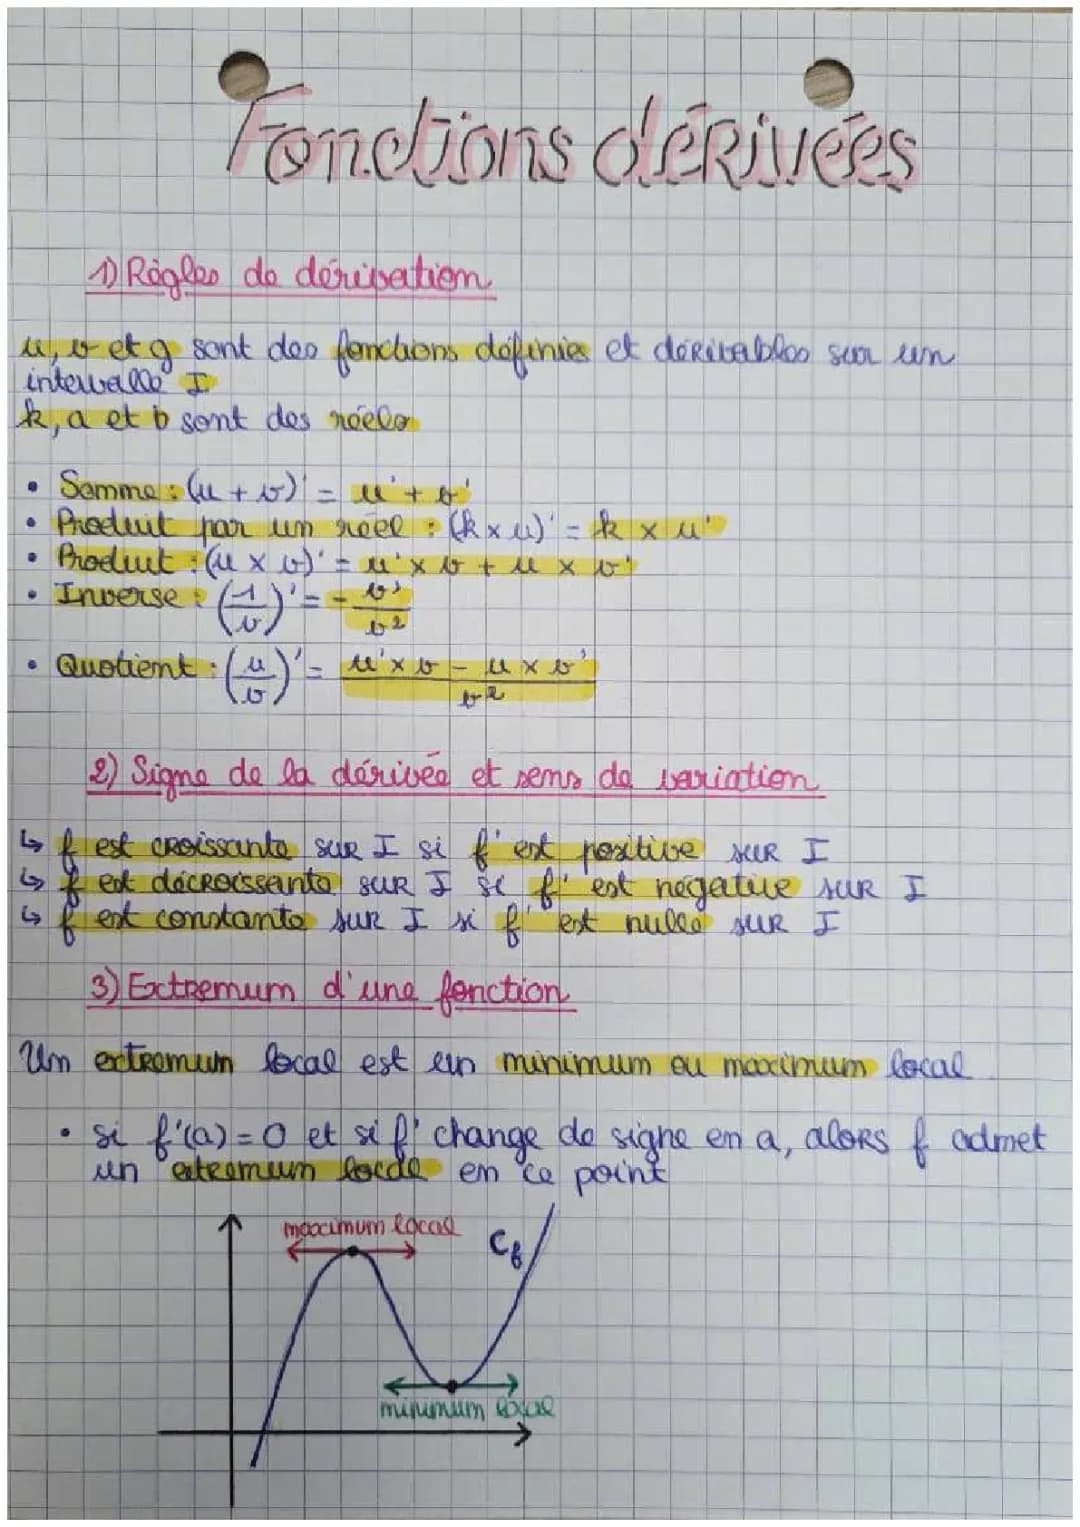 Fonctions dérivées
1) Règles de dérivation
u, v et g sont des fonctions définies et dérivables sur un
intervalle I
k, a et b sont des réels
• Somme : (u + v)' = u' + v'
• Produit par un réel : (k × u)' = k × u'
• Produit : (u × v)' = u' × v + u × v'
• Inverse : (1/v)' = - v'/v²
• Quotient : (u/v)' = (u' × v - u × v')/v²
2) Signe de la dérivée et sens de variation
↳ f est croissante sur I si f' est positive sur I
↳ f est décroissante sur I si f' est négative sur I
↳ f est constante sur I si f' est nulle sur I
3) Extremum d'une fonction
Un extremum local est un minimum ou maximum local
• si f'(a) = 0 et si f' change de signe en a, alors f admet
un extremum local en ce point
maximum local
Cf
minimum local